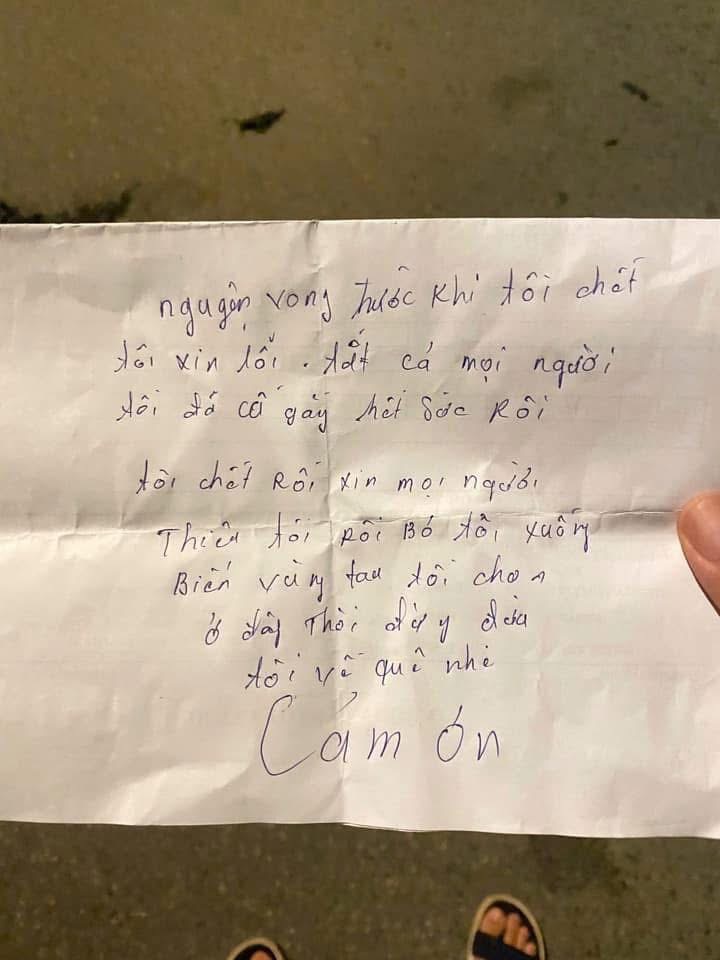 nguyện vong trước khi tôi chết
tôi xin lỗi . tất cả mọi người
tôi đã cố gắg hết sức Rồi
tôi chết Rồi xin mọi người
Thiêu tôi Rồi Bỏ tôi xuống
Biển vũng tau tôi chọn
ở đây Thôi đừg đưa
tôi về quê nhé
Cảm ơn